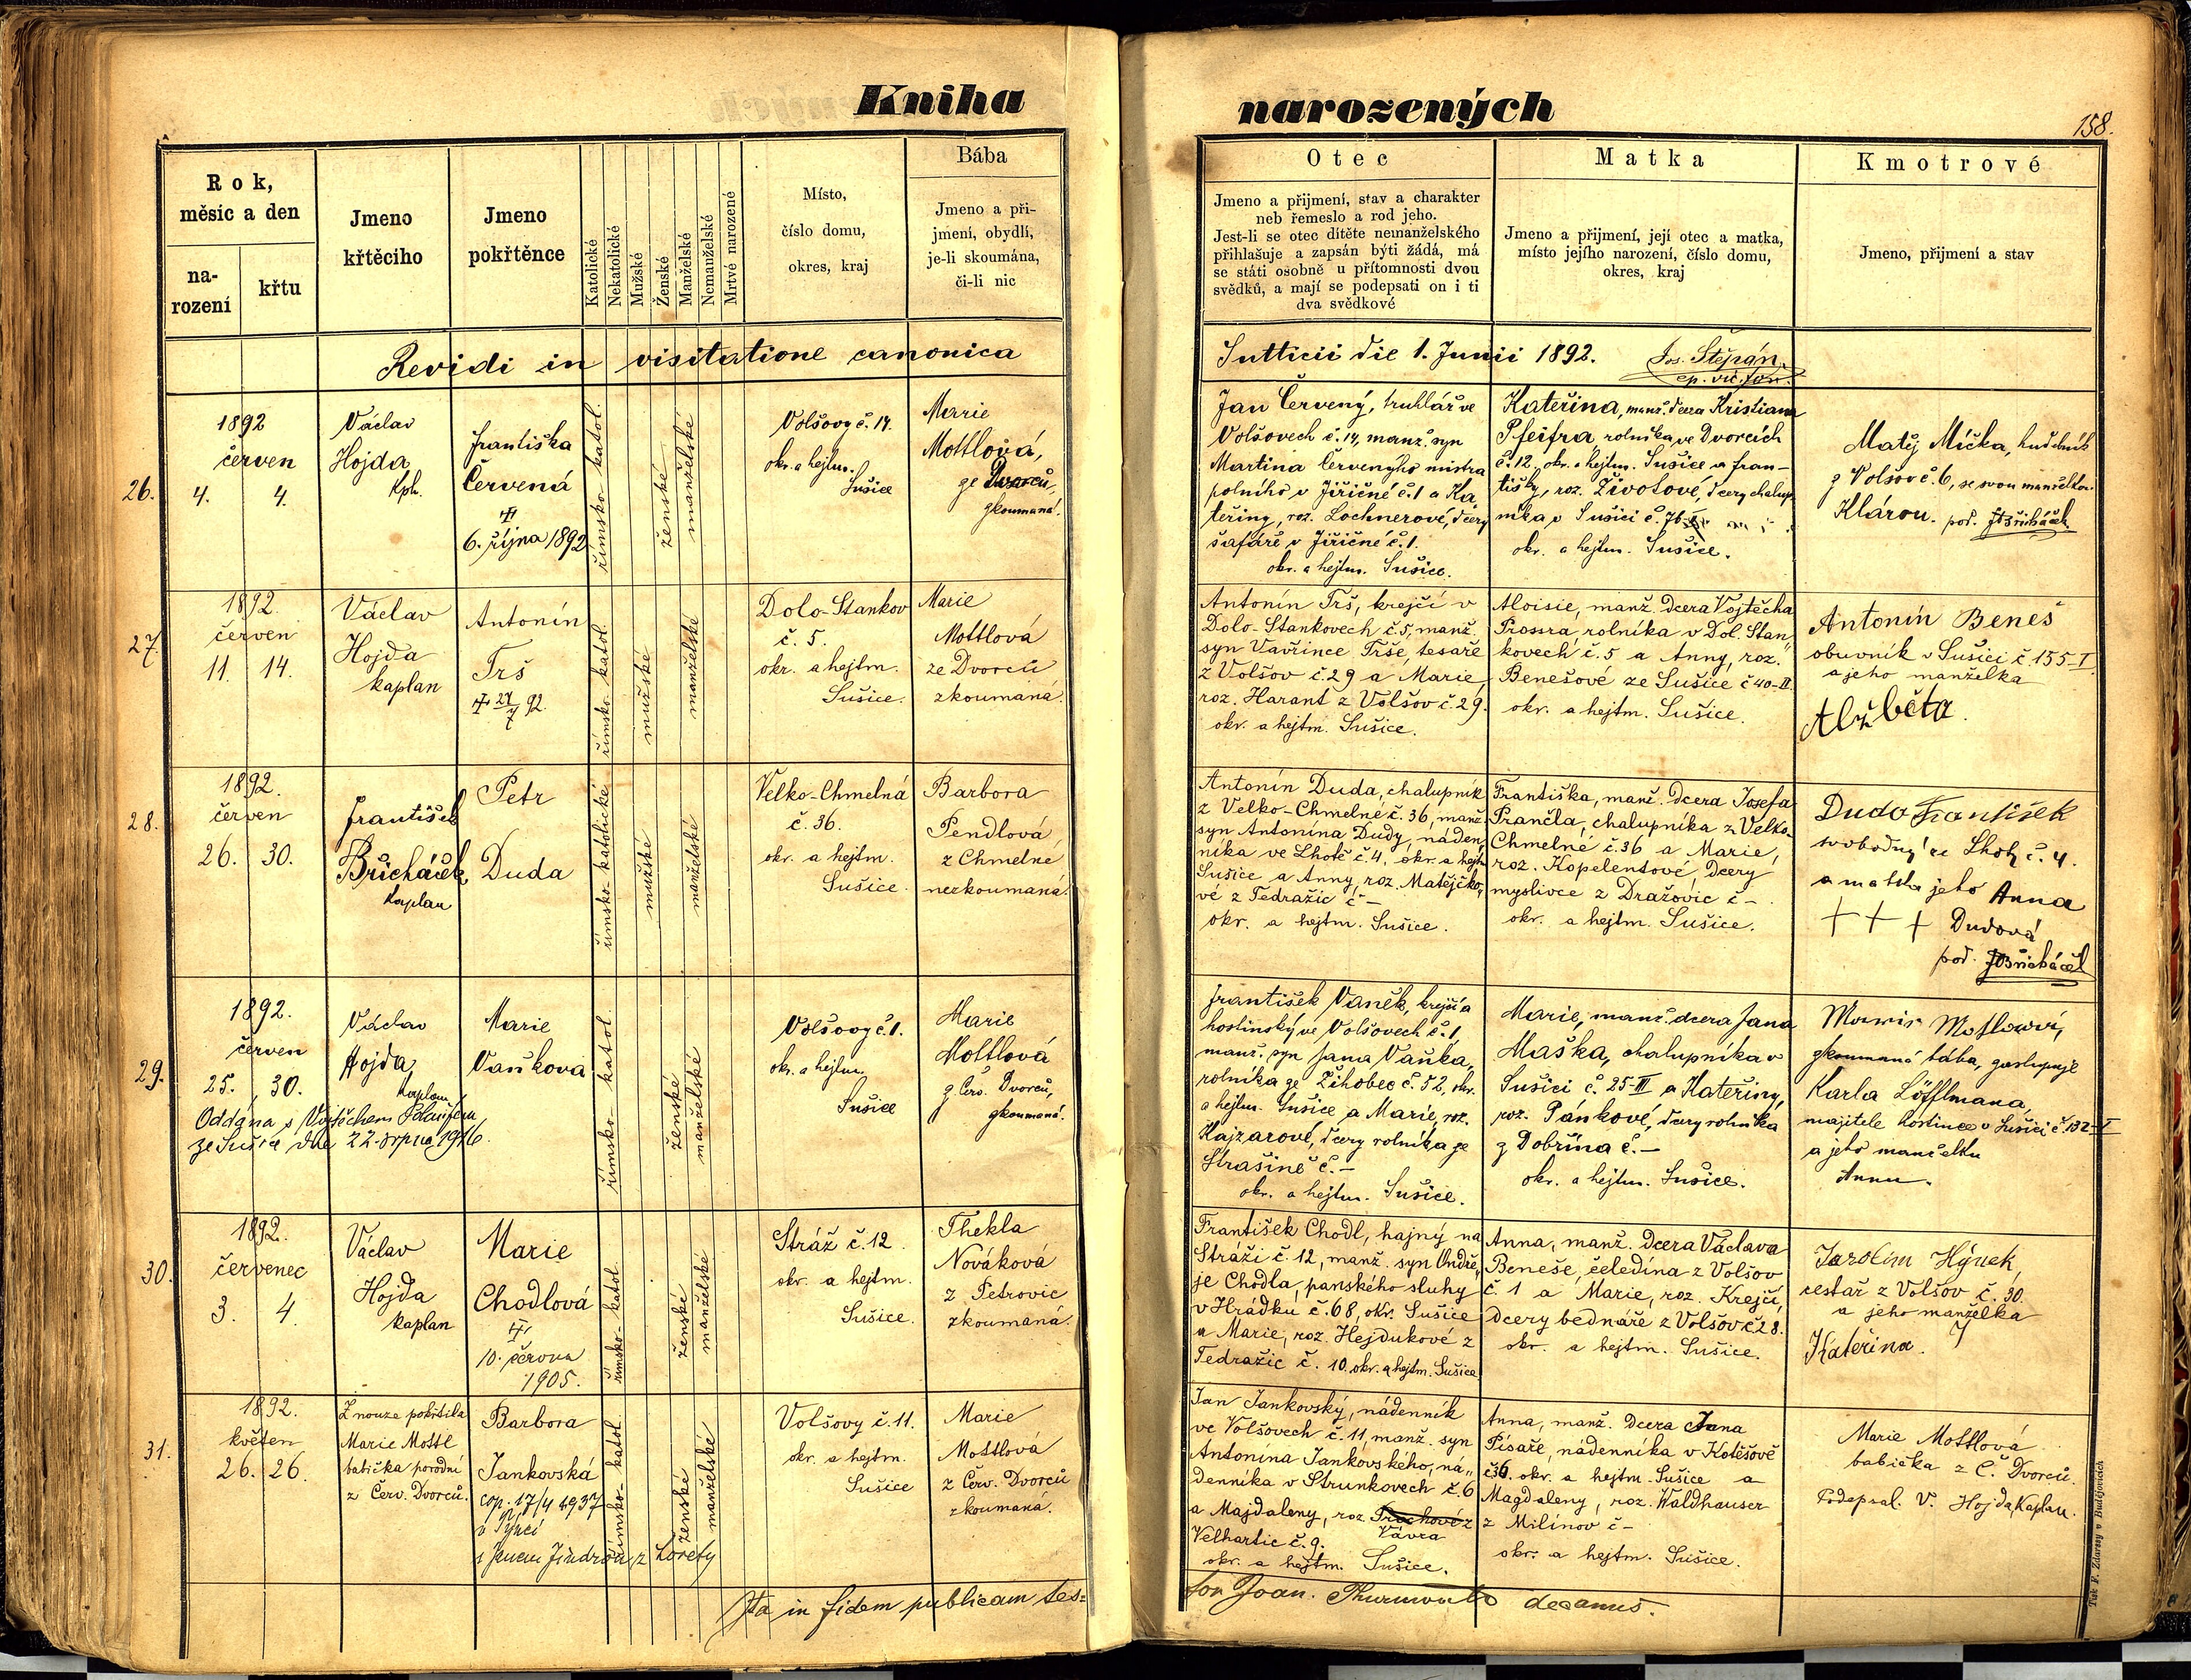 Kniha
narozených
158.
Rok,
měsíc a den
na-
rození
křtu
Jmeno
křtěcího
Jmeno
pokřtěnce
Katolické
Nekatolické
Mužské
Ženské
Manželské
Nemanželské
Mrtvé narozené
Místo,
číslo domu,
okres, kraj
Bába
Jmeno a při-
jmení, obydlí,
je-li skoumána,
či-li nic
Otec
Jmeno a přijmení, stav a charakter
neb řemeslo a rod jeho.
Jest-li se otec dítěte nemanželského
přihlašuje a zapsán býti žádá, má
se státi osobně u přítomnosti dvou
svědků, a mají se podepsati on i ti
dva svědkové
Matka
Jmeno a přijmení, její otec a matka,
místo jejího narození, číslo domu,
okres, kraj
Kmotrové
Jmeno, přijmení a stav
Revidi in visitatione canonica
Sutticii die 1. Junii 1892.
Jos. Štěpán,
ep. vic. for.
26.
1892
červen
4. 4.
Václav
Hojda
kpl.
Františka
Červená
6. října 1892
římsko-katol.
ženské
manželské
Volšovy č. 14.
okr. a hejtm.
Sušice
Marie
Mottlová,
ze Dvorců,
zkoumaná.
Jan Červený, truhlář ve
Volšovech č. 14, manž. syn
Martina Červenýho mistra
polního v Jiřičné č. 1 a Ka
teřiny, roz. Lochnerové, dcery
šafáře v Jiřičné č. 1.
okr. a hejtm. Sušice.
Kateřina, manž. dcera Kristiana
Pfeifra rolníka ve Dvorcích
č. 12, okr. a hejtm. Sušice a Fran-
tišky, roz. Životové, dcery chalup
níka v Sušici č. 76
okr. a hejtm. Sušice.
Matěj Míčka, hudebník
z Volšov č. 6, se svou manželkou
Klárou. pod. J Břicháček
27.
1892.
červen
11. 14.
Václav
Hojda
kaplan
Antonín
Trš
27/7 92.
římsko-katol.
mužské
manželské
Dolo-Stankov
č. 5.
okr. a hejtm.
Sušice.
Marie
Mottlová
ze Dvorců
zkoumaná.
Antonín Trš, krejčí v
Dolo-Stankovech č. 5, manž.
syn Vavřince Trše, tesaře
z Volšov č. 29 a Marie,
roz. Harant z Volšov č. 29.
okr. a hejtm. Sušice.
Aloisie, manž. dcera Vojtěcha
Prossra, rolníka v Dol. Stan
kovech č. 5 a Anny, roz.
Benešové ze Sušice č 40-II.
okr. a hejtm. Sušice.
Antonín Beneš
obuvník v Sušici č. 155-I.
a jeho manželka
Alžběta.
28.
1892.
červen
26. 30.
František
Břicháček
kaplan
Petr
Duda
římsko-katolické
mužské
manželské
Velko-Chmelná
č. 36.
okr. a hejtm.
Sušice.
Barbora
Pendlová
z Chmelné
nezkoumaná.
Antonín Duda, chalupník
z Velko-Chmelné č. 36, manž.
syn Antonína Dudy, náden
níka ve Lhotě č. 4. okr. a hejt.
Sušice a Anny, roz. Matějčko„
vé z Tedražic č –
okr. a hejtm. Sušice.
Františka, manž. dcera Josefa
Prančla, chalupníka z Velko-
Chmelné č. 36 a Marie,
roz. Kopelentové, dcery
myslivce z Dražovic č –.
okr. a hejtm. Sušice.
Duda František
svobodný ze Lhoty č. 4.
a matka jeho Anna
+ + + Dudová
pod. J Břicháček
29.
1892.
červen
25. 30.
Václav
Hojda,
kaplan
Marie
Vaňková
římsko-katol.
ženské
manželské
Volšovy č. 1.
okr. a hejtm.
Sušice
Marie
Mottlová
z Červ. Dvorců,
zkoumaná.
Oddána s Vojtěchem
ze Sušice dne 22. srpna 1916.
František Vaněk, krejčí a
hostinský ve Volšovech č. 1,
manž. syn Jana Vaňka,
rolníka ze Žihobec č. 52, okr.
a hejtm. Sušice a Marie, roz.
Kajzarové, dcery rolníka ze
Strašině č. –
okr. a hejtm. Sušice.
Marie, manž. dcera Jana
Maška, chalupníka v
Sušici č. 25-III a Kateřiny,
roz. Pánkové, dcery rolníka
z Dobřína č. –
okr. a hejtm. Sušice.
Marie Mottlová,
zkoumaná bába, zastupuje
Karla Löfflmana,
majitele hostince v Sušici č. 132-I
a jeho manželku
Annu.
30.
1892.
červenec
3. 4.
Václav
Hojda
kaplan
Marie
Chodlová
10. června
1905.
římsko-katol.
ženské
manželské
Stráž č. 12.
okr. a hejtm.
Sušice.
Thekla
Nováková
z Petrovic
zkoumaná.
František Chodl, hajný na
Stráži č. 12, manž. syn Ondře„
je Chodla, panského sluhy
v Hrádku č. 68, okr. Sušice
a Marie, roz. Hejdukové z
Tedražic č. 10. okr. a hejtm. Sušice
Anna, manž. dcera Václava
Beneše, čeledína z Volšov
č. 1 a Marie, roz. Krejčí,
dcery bednáře z Volšov č 28.
okr. a hejtm. Sušice.
Jarolím Hýnek,
cestář z Volšov č. 30.
a jeho manželka
Kateřina.
31.
1892.
květen
26. 26.
Z nouze pokřtila
Marie Mottl
babička porodní
z Červ. Dvorců.
Barbora
Jankovská
cop. 17/4 1937
v Týnci
s Janem Jindrou z Lorety
římsko-katol.
ženské
manželské
Volšovy č. 11.
okr. a hejtm.
Sušice
Marie
Mottlová
z Červ. Dvorců
zkoumaná.
Jan Jankovský, nádenník
ve Volšovech č. 11, manž. syn
Antonína Jankovského, ná„
denníka v Strunkovech č. 6
a Majdaleny, roz. z
Vávra
Velhartic č. 9.
okr. a hejtm. Sušice.
Anna, manž. dcera Jana
Písaře, nádenníka v Kotěšově
č 36. okr. a hejtm. Sušice a
Magdaleny, roz. Waldhauser
z Milínov č –
okr. a hejtm. Sušice.
Marie Mottlová
babička z Č. Dvorců.
Podepsal. V. Hojda, Kaplan.
Ita in fidem publicam tes=
tor Joan. Thurnwald decanus.
Tisk F. Zdarssy v Budějovicích